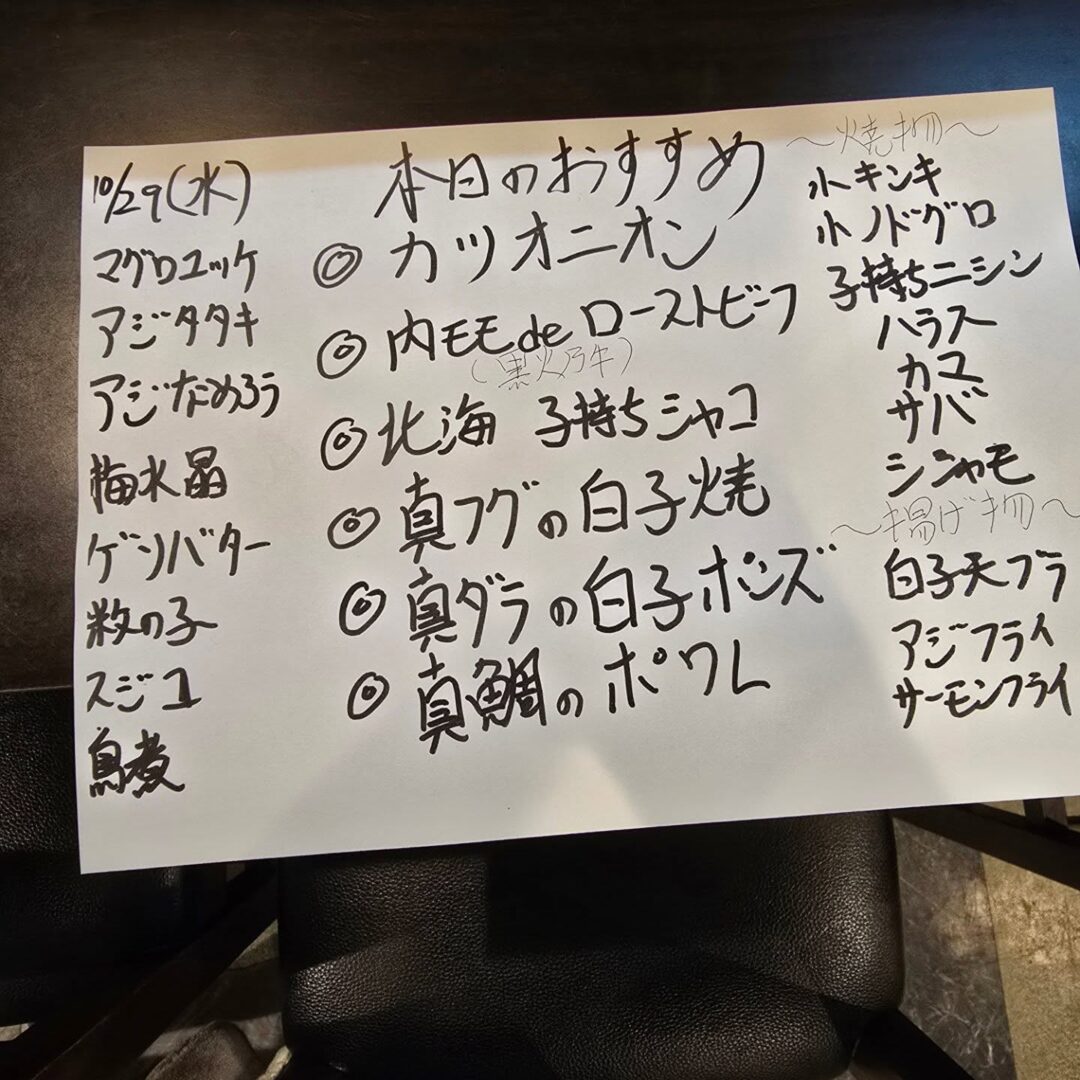 10/29(水)
マグロユッケ
アジタタキ
アジなめろう
梅水晶
ゲソバター
数の子
スジコ
鳥煮
本日のおすすめ
◎カツオニオン
◎内モモdeローストビーフ
(黒火乃牛)
◎北海 子持ちシャコ
◎真フグの白子焼
◎真ダラの白子ポンズ
◎真鯛のポワレ
～焼物～
小キンキ
小ノドグロ
子持ちニシン
ハラス
カマ
サバ
シシャモ
～揚げ物～
白子天プラ
アジフライ
サーモンフライ